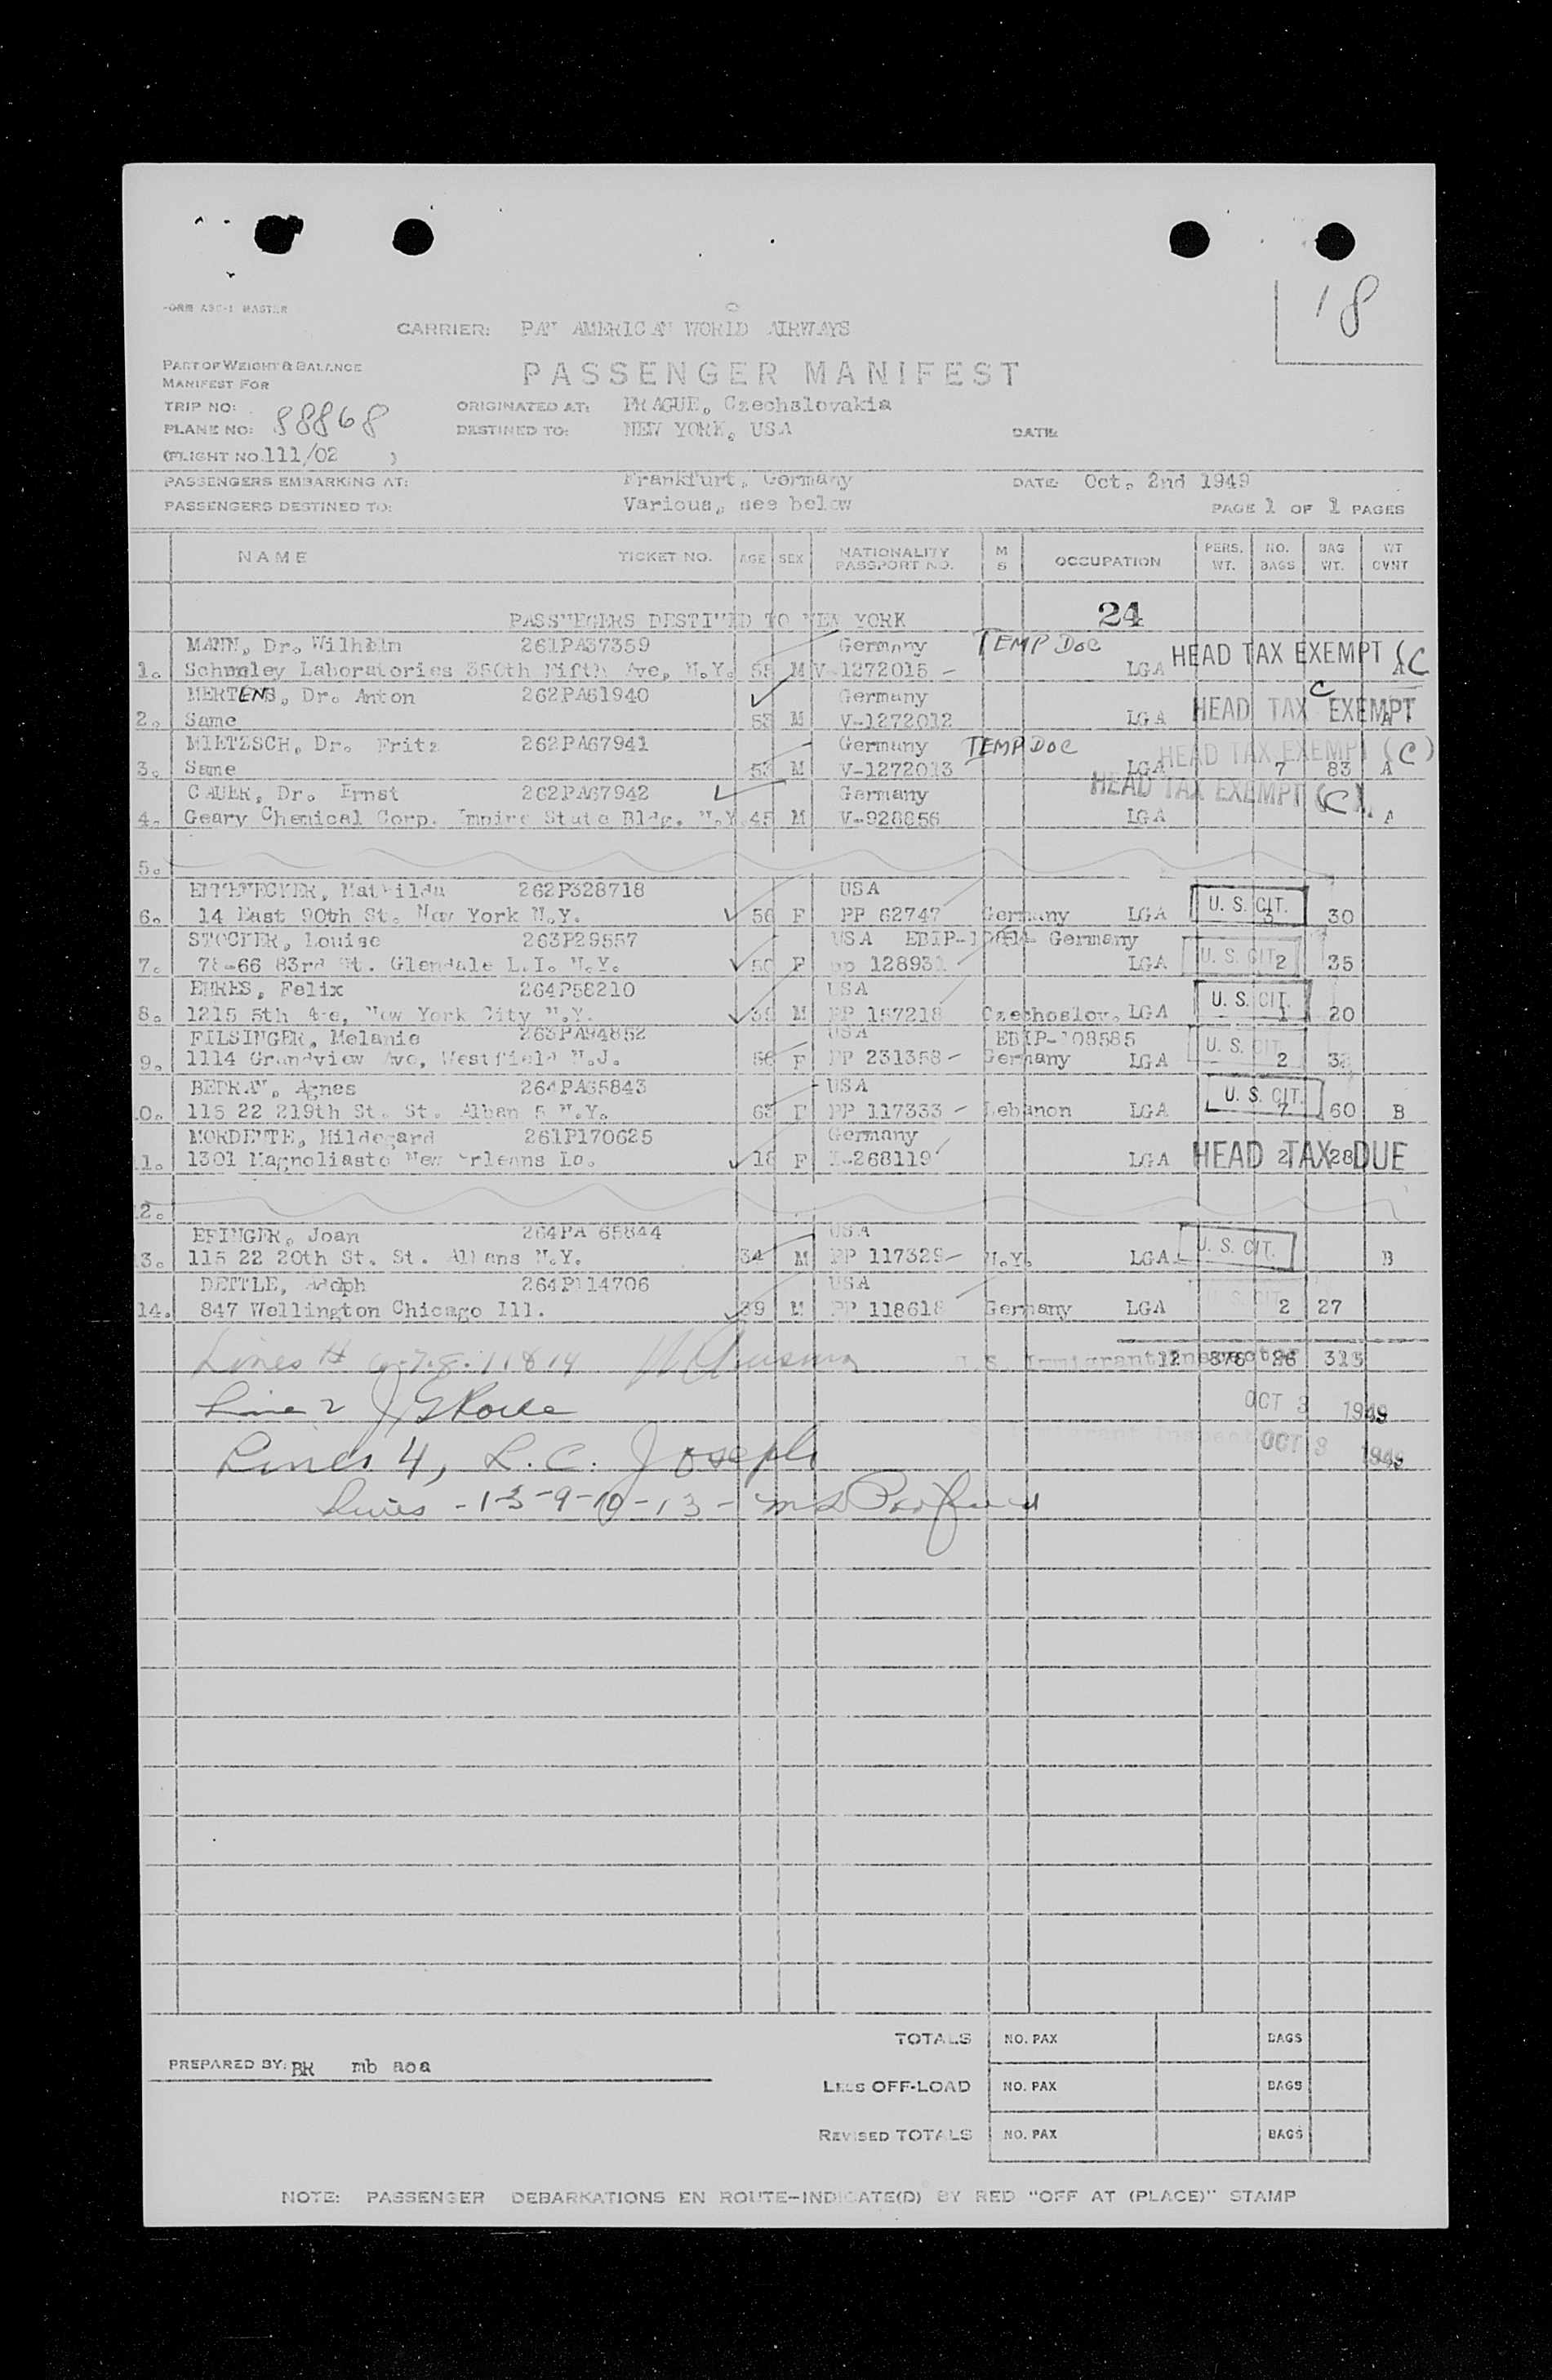 18
FORM MASTER
CARRIER: PAN AMERICAN WORLD AIRWAYS
PART OF WEIGHT & BALANCE
MANIFEST FOR
PASSENGER MANIFEST
TRIP NO: 88868 ORIGINATED AT: PRAGUE, Czechslovakia
PLANE NO: DESTINED TO: NEW YORK, USA DATE:
(FLIGHT NO.111/02 )
PASSENGERS EMBARKING AT: Frankfurt, Germany DATE: Oct. 2nd 1949
PASSENGERS DESTINED TO: Various, see below PAGE 1 OF 1 PAGES
NAME TICKET NO. AGE SEX NATIONALITY PASSPORT NO. M S OCCUPATION PERS. WT. NO. BAGS BAG WT. WT CVNT
PASSENGERS DESTINED TO NEW YORK 24
MANN, Dr. Wilhelm 261PA37359 Germany TEMP DOC
1. Laboratories 350th Fifth Ave, N.Y. 55 M V-1272015 - LGA HEAD TAX EXEMPT (C
MERTENS, Dr. Anton 262PA61940 Germany C
2. Same 53 M V-1272012 LGA HEAD TAX EXEMPT A
MIETZSCH, Dr. Fritz 262PA67941 Germany TEMP DOC HEAD TAX EXEMPT (C)
3. Same 53 M V-1272013 LGA 7 83 A
CAUER, Dr. Ernst 262PA67942 Germany HEAD TAX EXEMPT (C)
4. Geary Chemical Corp. Empire State Bldg. N.Y 45 M V-928856 LGA A
5.
Mathilda 262P328718 USA
6. 14 East 90th St. New York N.Y. 56 F PP 62747 Germany LGA U. S. CIT. 3 30
STOCKER, Louise 263P29557 USA Germany
7. 78-66 83rd St. Glendale L.I. N.Y. 50 F pp 128931 LGA U. S. CIT 2 35
EHRES, Felix 264P58210 USA
8. 1215 5th Ave, New York City N.Y. M PP 157218 Czechoslov. LGA U. S. CIT. 1 20
FILSINGER, Melanie 263PA94852 USA EDIP-108585
9. 1114 Grandview Ave, Westfield N.J. 56 F PP 231358 - Germany LGA U. S. CIT 2
Agnes 264PA65843 USA
0. 115 22 219th St. St. Alban 5 N.Y. 63 F PP 117333 - Lebanon LGA U. S. CIT. 7 60 B
MORDENTE, Hildegard 261P170625 Germany
1. 1301 New Orleans La. 18 F 268119 LGA HEAD TAX DUE 2 28
2.
EFINGER, Joan 264PA 65844 USA
3. 115 22 20th St. St. Albans N.Y. 34 M PP 117329 - N.Y. LGA U. S. CIT. B
DETTLE, Adolph 264P114706 USA
14. 847 Wellington Chicago Ill. 39 M PP 118618 Germany LGA U. S. CIT 2 27
Lines # 6-7-8-11 & 14 U.S. Immigrant Inspector 12 876 26 313
Line 2 OCT 3 1949
Lines 4, L. C. Joseph Immigrant Inspector OCT 3 1949
Lines -1-3-9-10-13-
TOTALS NO. PAX BAGS
PREPARED BY: BR mb aoa
LESS OFF-LOAD NO. PAX BAGS
REVISED TOTALS NO. PAX BAGS
NOTE: PASSENGER DEBARKATIONS EN ROUTE-INDICATE(D) BY RED "OFF AT (PLACE)" STAMP